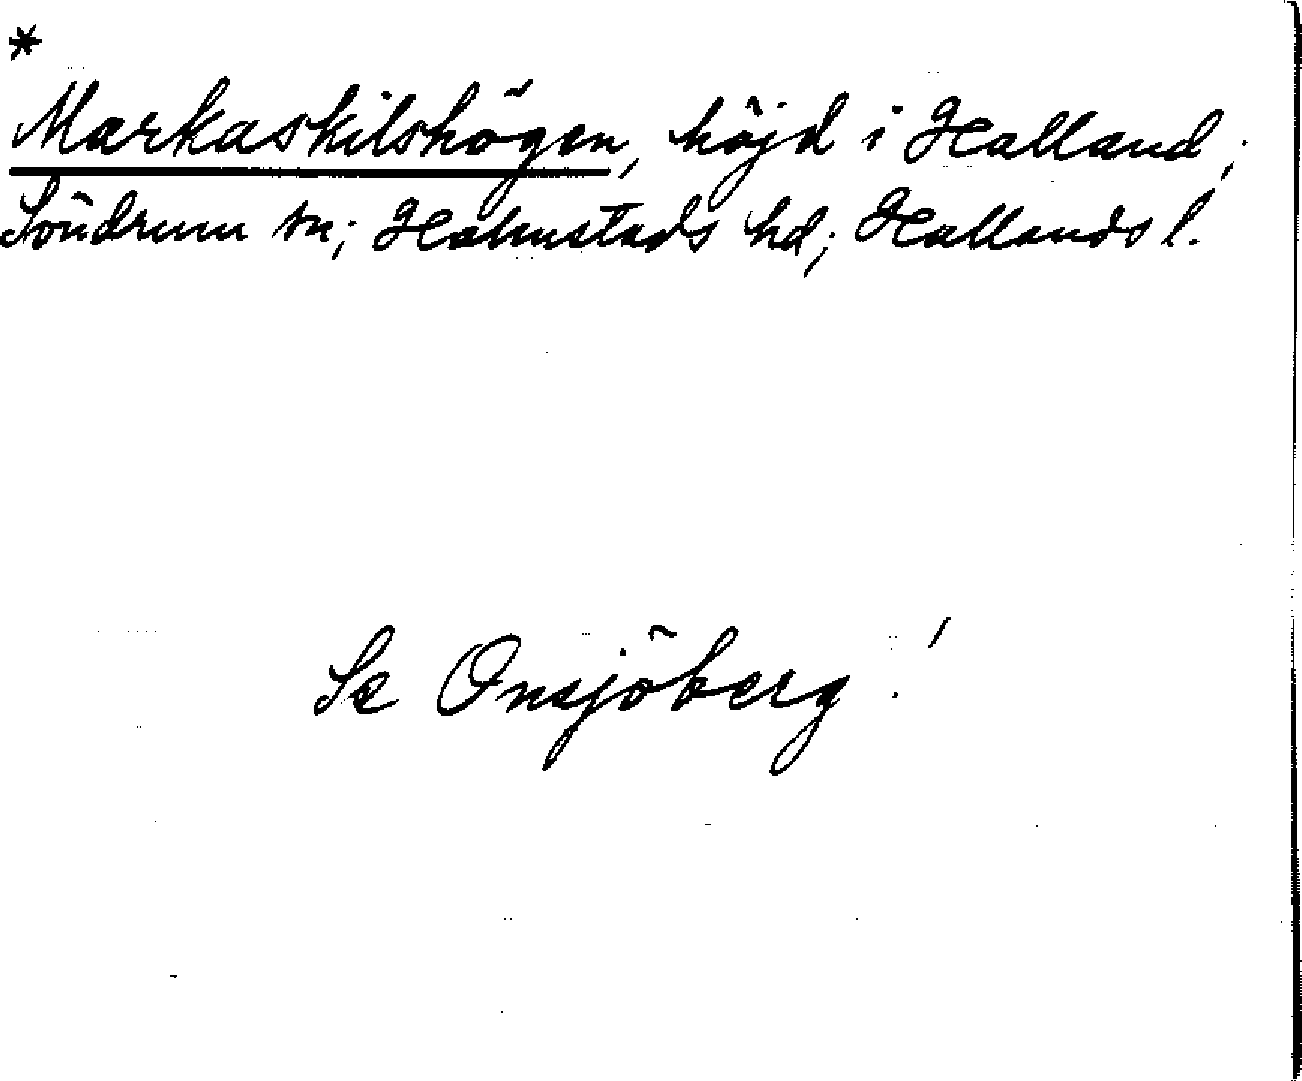 *
Markaskilshögen, höjd i Halland;
Söndrum sn; Halmstads hd; Hallands l.
Se Onsjöberg!